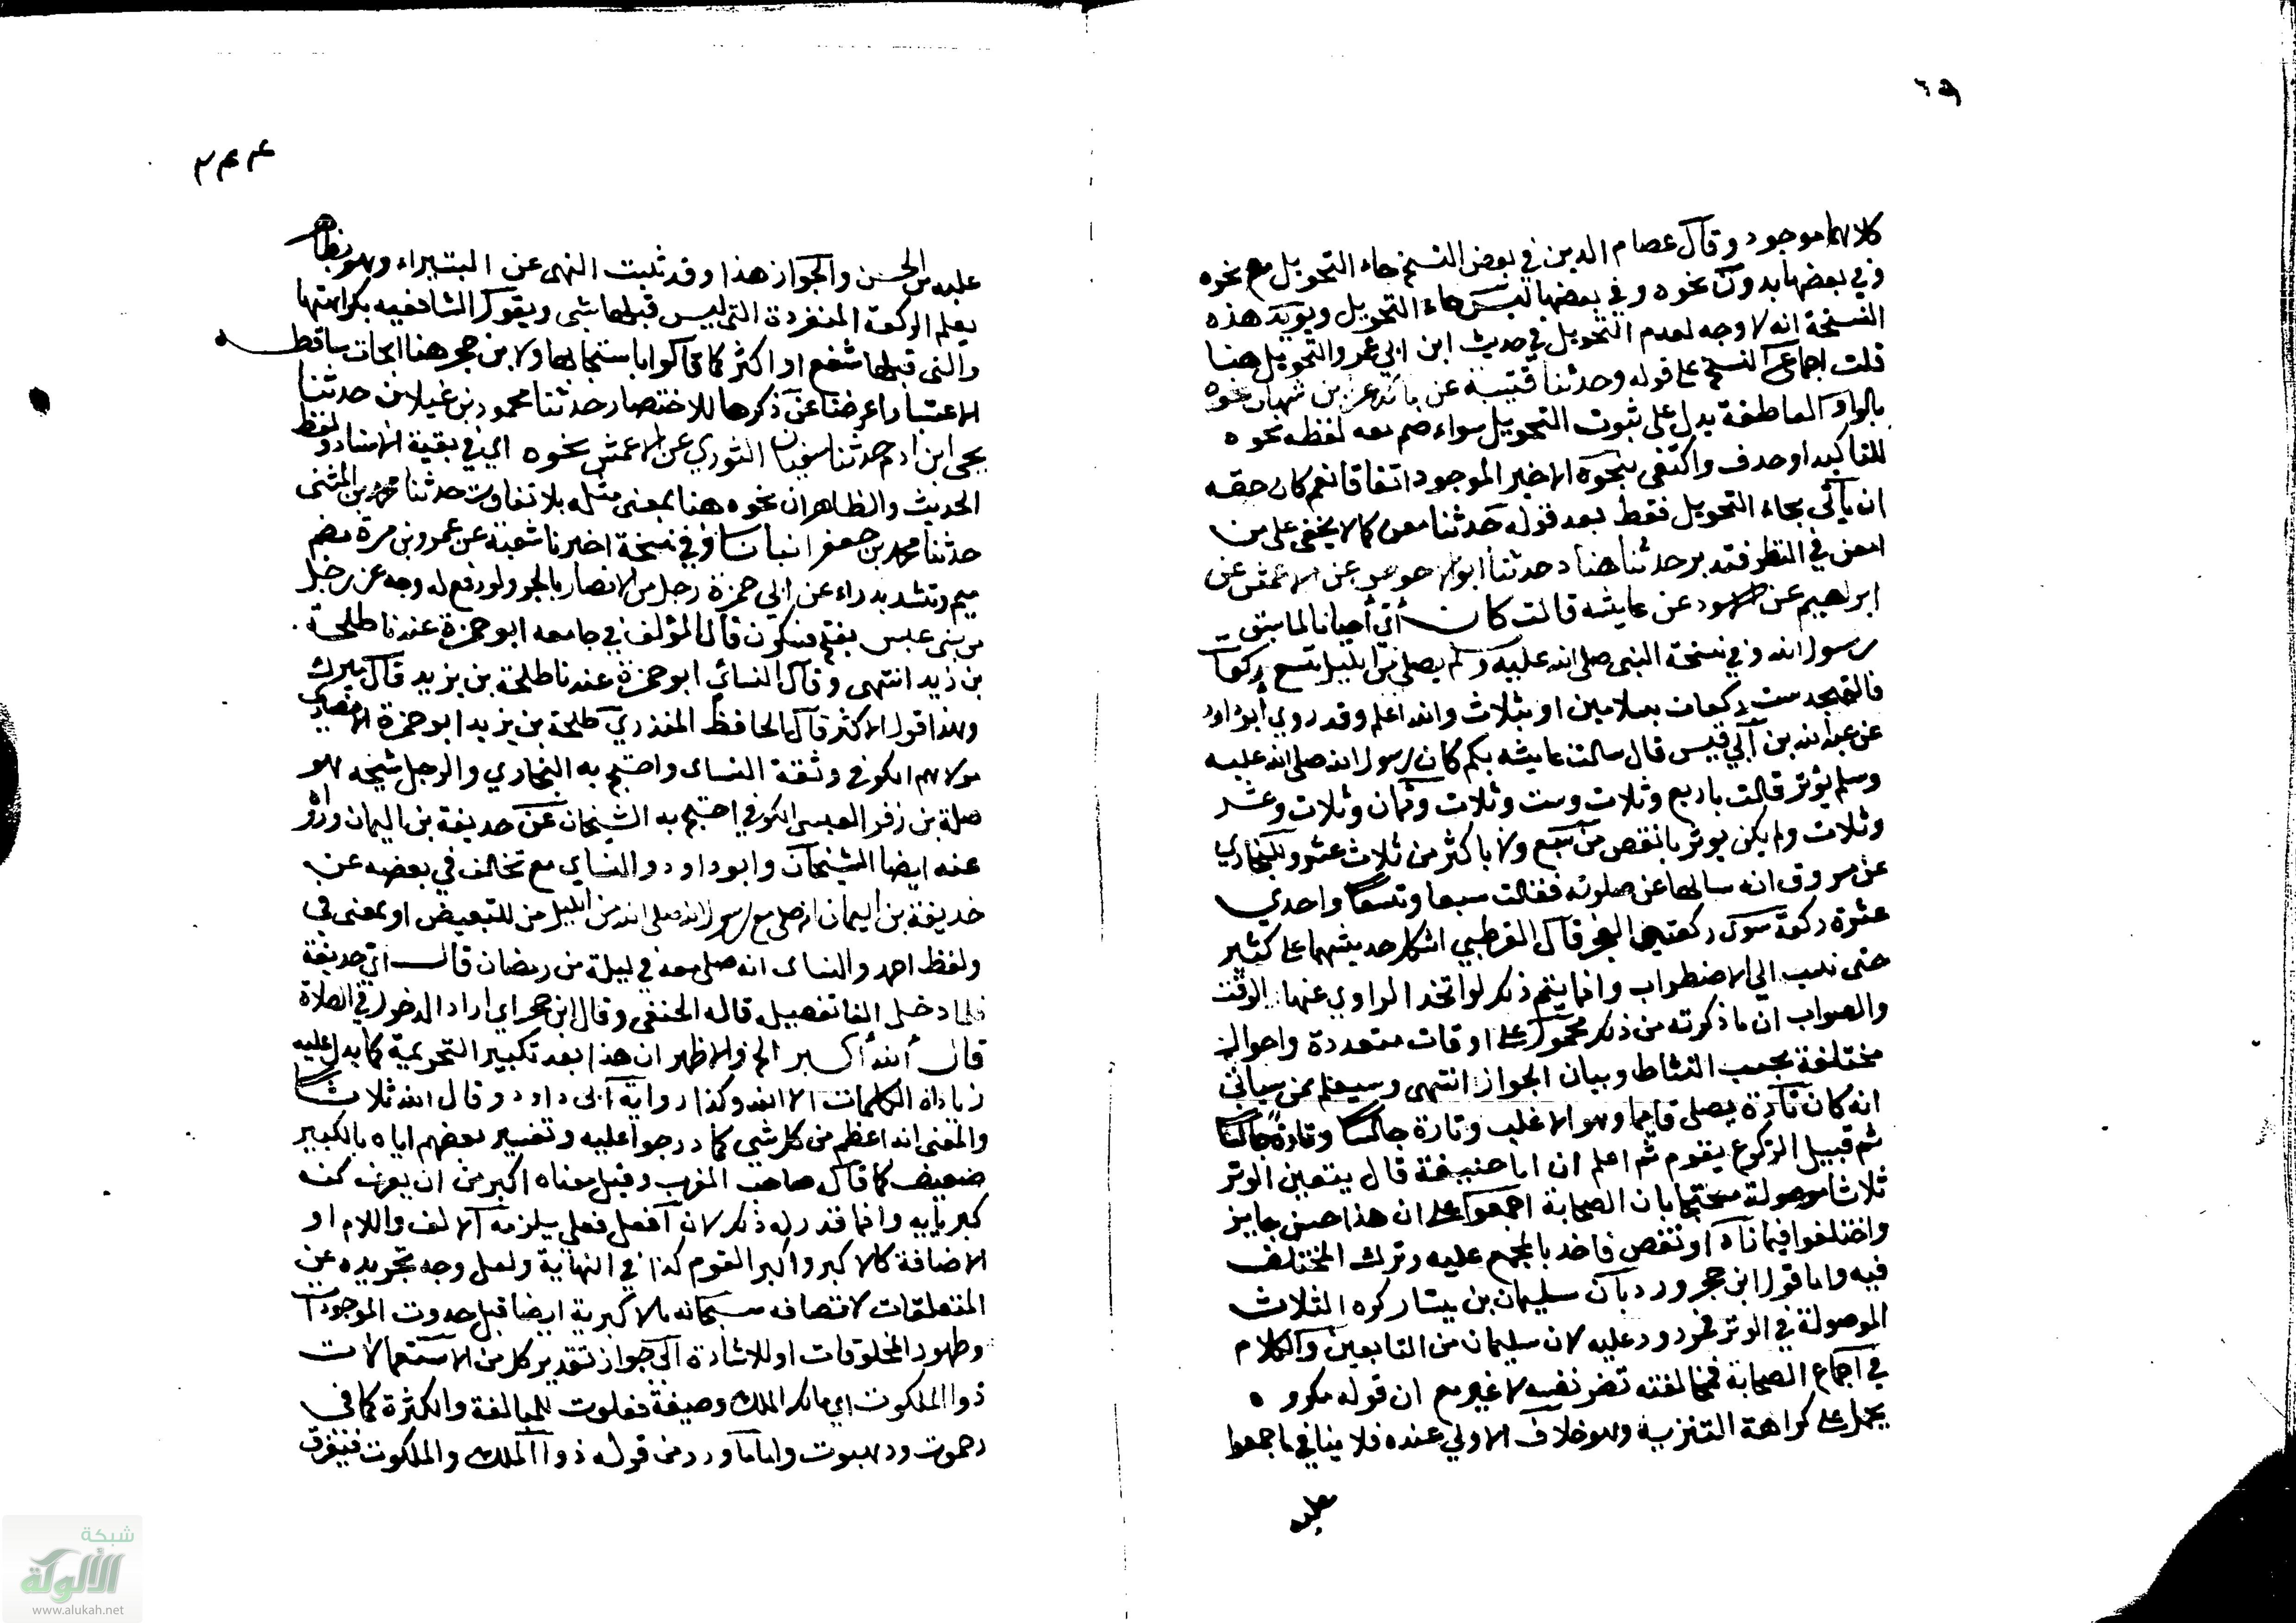 ٦٩
كلاهما موجود وقال عصام الدين في بعض النسخ حاء التحويل مع نحوه
وفي بعضها بدون نحوه وفي بعضها ليس حاء التحويل ويؤيد هذه
النسخة انه لا وجه لعدم التحويل في حديث ابن ابي عمر والتحويل هنا
قلت اجماع النسخ على قوله وحدثنا قتيبة عن مالك عن ابن شهاب نحوه
بالواو العاطفة يدل على ثبوت التحويل سواء ضم معه لفظه نحوه
للتاكيد او حدف واكتفى بنحوه الاخير الموجود اتفاقا نعم كان حقه
ان يأتي بحاء التحويل فقط بعد قوله حدثنا معن كما لا يخفى على من
امعن في النظر فتدبر حدثنا هناد حدثنا ابو الاحوص عن الاعمش عن
ابرهيم عن الاسود عن عايشه قالت كان أي أحيانا لما سبق
رسول الله وفي نسخة النبي صلى الله عليه وسلم يصلي من الليل تسع ركعات
فالتهجد ست ركعات بسلامين او بثلاث والله اعلم وقد روي أبو داود
عن عبد الله بن أبي قيس قال سالت عايشه بكم كان رسول الله صلى الله عليه
وسلم يوتر قالت باربع وثلاث وست وثلاث وثمان وثلاث وعشر
وثلاث ولم يكن يوتر بانقص من سبع ولا باكثر من ثلاث عشر وللبخاري
عن مسروق انه سالها عن صلوته فقالت سبعا وتسعا واحدي
عشرة ركعة سوى ركعتي الفجر قال القرطبي اشكل حديثهما على كثير
حتى نسب الي الاضطراب وانما يتم ذلك لو اتحد الراوي عنها والوقت
والصواب ان ما ذكرته من ذلك محمول على اوقات متعددة واحوال
مختلفة بحسب النشاط وبيان الجواز انتهى وسيعلم مما سيأتي
انه كان تارة يصلي قايما وهو الاغلب وتارة جالسا وتارة جالسا
ثم قبيل الركوع يقوم ثم اعلم ان ابا حنيفة قال يتعين الوتر
ثلاثا موصولة محتجا بان الصحابة اجمعوا على ان هذا حسن جايز
واختلفوا فيما زاد او نقص فاخد بالمجمع عليه وترك المختلف
فيه واما قول ابن حجر ورد بأن سليمان بن يسار كره الثلاث
الموصولة في الوتر فمردود عليه لان سليمان من التابعين والكلام
في اجماع الصحابة فمخالفته تضر نفسه لا غير مع ان قوله مكروه
يحمل على كراهة التنزيه وهو خلاف الاولي عنده فلا ينافي ما اجمعوا
عليه
٢٤٤
عليه من الحسن والجواز هذا وقد ثبت النهى عن البتيراء وهو بظاهره
يعلم الركعة المنفردة التي ليس قبلها شي ويقول الشافعيه بكراهتها
والتي قبلها شفع او اكثر كما قالوا باستحبابها ولابن حجر هنا ابحاث ساقطه
الاعتبار اعرضنا عن ذكرها للاختصار حدثنا محمود بن غيلان حدثنا
يحيى ابن ادم حدثنا سفيان الثوري عن الاعمش نحوه اي في بقية الاسناد ولفظ
الحديث والظاهر ان نحوه هنا بمعنى مثله بلا تفاوت حدثنا محمد بن المثنى
حدثنا محمد بن جعفر انبانا وفي نسخة اخبرنا شعبة عن عمرو بن مرة بضم
ميم وتشديد راء عن ابي حمزة رجل من الانصار بالجر ولو رفع له وجه عن رجل
من بني عبس بفتح فسكون قال المؤلف في جامعه ابو حمزة عندنا طلحة
بن زيد انتهى وقال النسائي ابو حمزة عندنا طلحة بن يزيد قال ميرك
وهذا قول الاكثر قال الحافظ المنذري طلحة بن يزيد ابو حمزة الانصاري
مولاهم الكوفي وثقة النساى واحتج به البخاري والرجل شيخه هو
صلة بن زفر العبسي الكوفي احتج به الشيخان عن حديفة بن اليمان ورواه
عنه ايضا الشيخان وابو داود والنساي مع تخالف في بعضه عن
حذيفة بن اليمان انه صلى مع رسول الله صلى الله من الليل من للتبعيض او بمعنى في
ولفظ احمد والنساى انه صلى معه في ليلة من رمضان قال أي حديفة
فلما دخل الفا تفصيله قاله الحنفي وقال ابن حجر اي اراد الدخول في الصلاة
قال ألله أكبر الخ والاظهر ان هذا بعد تكبير التحريمة كما يدل عليه
زيادة الكلمات الا الله وكذا رواية أبي داود وقال الله ثلاثا
والمعنى الله اعظم من كل شي كما درجوا عليه وتفسير بعضهم اياه بالكبير
ضعيف كما قال صاحب المغرب وقيل معناه اكبر من ان يعرف كنه
كبريايه وانما قدر له ذلك لان أفعل فعلى يلزمه الالف واللام او
الاضافة كالاكبر واكبر القوم كذا في النهاية ولعل وجه تجريده عن
المتعلقات لاتصافه سبحانه بالاكبرية ايضا قبل حدوث الموجودات
وظهور المخلوقات او للاشارة الى جواز تقدير كل من الاستعمالات
ذو الملكوت اي مالك الملك وصيغة فعلوت للمبالغة والكثرة كما في
رحموت ورهبوت واما ما ورد من قوله ذو الملك والملكوت فيفرق
شبكة
الألوكة
www.alukah.net